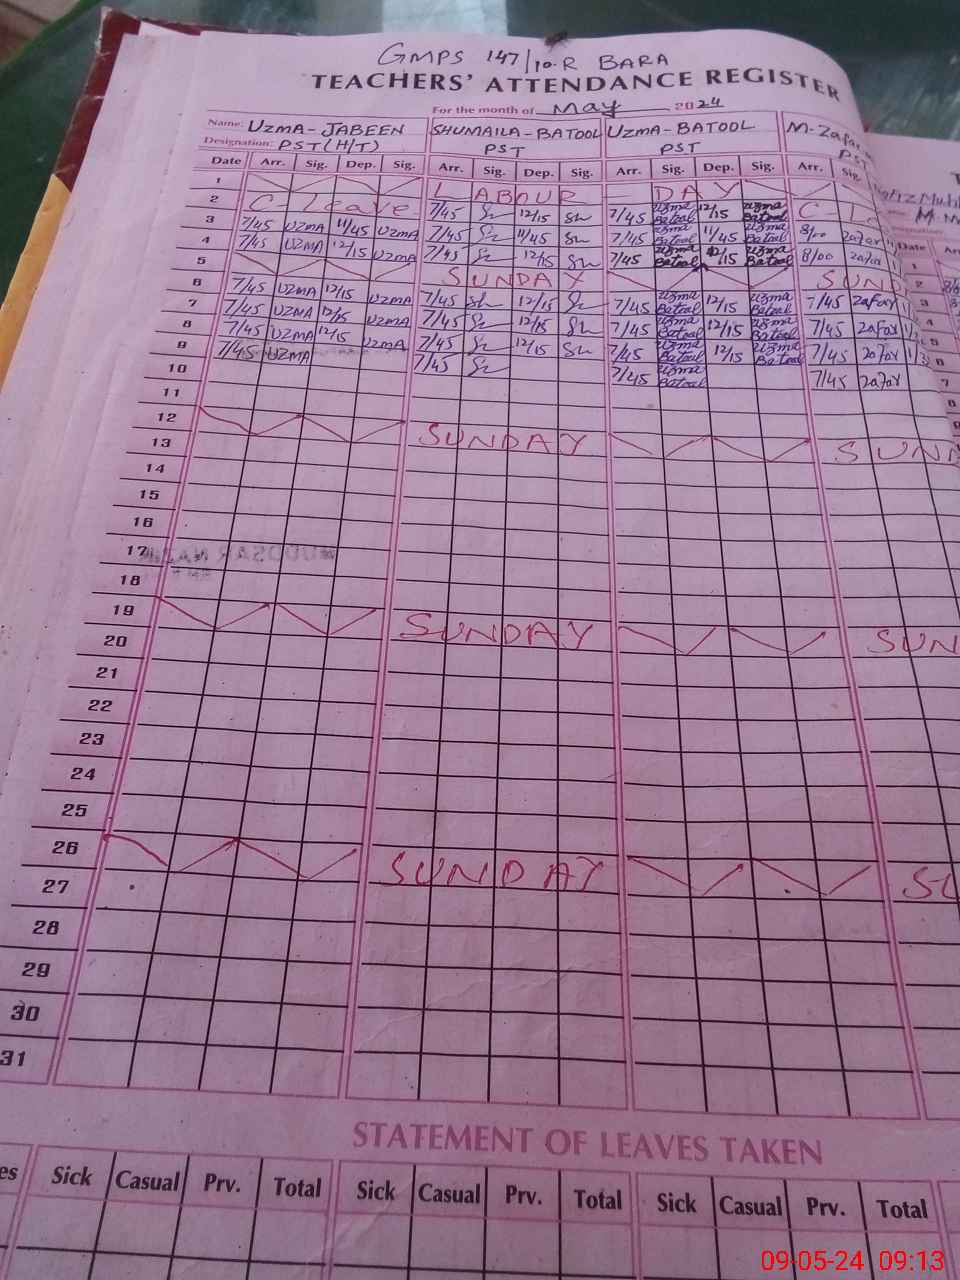 GMPS 147/10-R BARA
TEACHERS' ATTENDANCE REGISTER
For the month of May 2024
Name: UZMA-JABEEN SHUMAILA-BATOOL UZMA-BATOOL M-Zafar
Designation: PST(H/T) PST PST PST
Date Arr. Sig. Dep. Sig. Arr. Sig. Dep. Sig. Arr. Sig. Dep. Sig. Arr. Sig.
1 LABOUR DAY
2 C-Leave 7/45 12/15 7/45 Uzma Batool 12/15 Uzma Batool
3 7/45 UZMA 11/45 UZMA 7/45 11/45 7/45 Uzma Batool 11/45 Uzma Batool 8/00 Zafar
4 7/45 UZMA 12/15 UZMA 7/45 12/15 7/45 Uzma Batool 12/15 Uzma Batool 8/00 Zafar
5 SUNDAY SUN
6 7/45 UZMA 12/15 UZMA 7/45 12/15 7/45 Uzma Batool 12/15 Uzma Batool 7/45 Zafar
7 7/45 UZMA 12/15 UZMA 7/45 12/15 7/45 Uzma Batool 12/15 Uzma Batool 7/45 Zafar
8 7/45 UZMA 12/15 UZMA 7/45 12/15 7/45 Uzma Batool 12/15 Uzma Batool 7/45 Zafar
9 7/45 UZMA 7/45 7/45 Uzma Batool 7/45 Zafar
10
11
12 SUNDAY SUN
13
14
15
16
17
18
19 SUNDAY SUN
20
21
22
23
24
25
26 SUNDAY SU
27
28
29
30
31
STATEMENT OF LEAVES TAKEN
Sick Casual Prv. Total Sick Casual Prv. Total Sick Casual Prv. Total
09-05-24 09:13